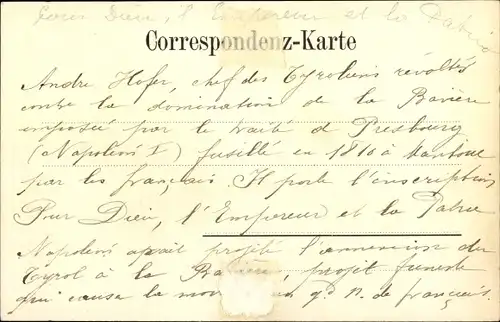 Pour Dieu, l'Empereur et la Patrie
Correspondenz-Karte
Andre Hofer, chef des Tyroliens révoltés
contre la domination de la Bavière
imposée par le traité d Presbourg
(Napoléon I) fusillé en 1810 à Mantoue
par les français. Il porte l'inscription
Pour Dieu, l'Empereur et la Patrie
Napoléon avait projeté l'annexion du
Tyrol à la Bavière, projet funeste
qui causa la mort g. d. n. de français.